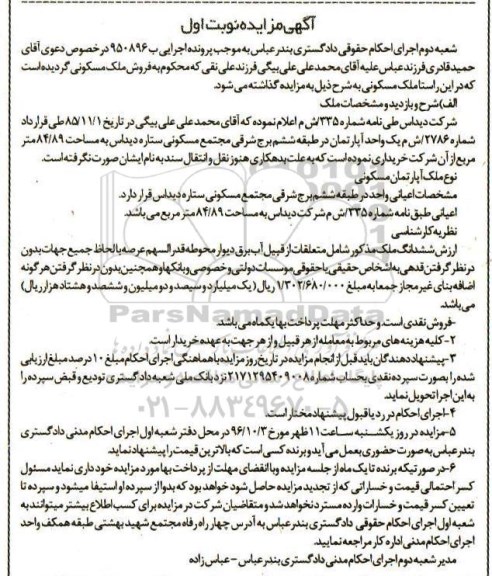 آگهی مزایده نوبت اول
شعبه دوم اجرای احکام حقوقی دادگستری بندرعباس به موجب پرونده اجرایی ب ۹۵۰۸۹۶ در خصوص دعوی آقای
حمید قادری فرزند عباس علیه آقای محمد علی علی بیگی فرزند علی نقی که محکوم به فروش ملک مسکونی گردیده است
که در این راستا ملک مسکونی به شرح ذیل به مزایده گذاشته می شود.
الف) شرح و بازدید و مشخصات ملک
شرکت دیداس طی نامه شماره ۳۳۵/ش م اعلام نموده که آقای محمد علی علی بیگی در تاریخ ۸۵/۱۱/۱ طی قرارداد
شماره ۲۷۸۶/ش م یک واحد آپارتمان در طبقه ششم برج شرقی مجتمع مسکونی ستاره دیداس به مساحت ۸۴/۸۹ متر
مربع از آن شرکت خریداری نموده است که به علت بدهکاری هنوز نقل و انتقال سند به نام ایشان صورت نگرفته است.
نوع ملک آپارتمان مسکونی
مشخصات اعیانی واحد در طبقه ششم برج شرقی مجتمع مسکونی ستاره دیداس قرار دارد.
اعیانی طبق نامه شماره ۳۳۵/ش م شرکت دیداس به مساحت ۸۴/۸۹ متر مربع می باشد.
نظریه کارشناسی
ارزش ششدانگ ملک مذکور شامل متعلقات از قبیل آب برق دیوار محوطه قدرالسهم عرصه با لحاظ جمیع جهات بدون
در نظر گرفتن قدهی به اشخاص حقیقی یا حقوقی موسسات دولتی و خصوصی و بانکها و همچنین بدون در نظر گرفتن هر گونه
اضافه بنای غیر مجاز جمعا به مبلغ ۱/۳۰۲/۶۸۰/۰۰۰ ریال (یک میلیارد و سیصد و دو میلیون و ششصد و هشتاد هزار ریال)
می باشد.
-فروش نقدی است. و حداکثر مهلت پرداخت بها یکماه می باشد.
۲-کلیه هزینه های مربوط به معامله از هر قبیل و از هر جهت به عهده خریدار است.
۳-پیشنهاد دهندگان باید قبل از انجام مزایده در تاریخ روز مزایده با هماهنگی اجرای احکام مبلغ ۱۰ درصد مبلغ ارزیابی
شده را بصورت سپرده نقدی بحساب شماره ۲۱۷۱۲۹۵۴۰۹۰۰۸ نزد بانک ملی شعبه دادگستری تودیع و قبض سپرده را
به این اجرا تحویل نماید.
۴-اجرای احکام در رد یا قبول پیشنهاد مختار است.
۵-مزایده در روز یکشنبه ساعت ۱۱ ظهر مورخ ۹۶/۱۰/۳ در محل دفتر شعبه اول اجرای احکام مدنی دادگستری
بندرعباس به صورت حضوری بعمل می آید و برنده کسی است که بالاترین قیمت را پیشنهاد نماید.
۶-در صورتیکه برنده تا یک ماه از جلسه مزایده و با انقضای مهلت از پرداخت بها مورد مزایده خودداری نماید مسئول
کسر احتمالی قیمت و خساراتی که از تجدید مزایده حاصل شود خواهد بود که بدوا از سپرده او استیفا میشود و سپرده تا
تعیین کسر قیمت و خسارات وارده مسترد نخواهد شد و متقاضیان شرکت در مزایده برای کسب اطلاع بیشتر میتوانند به
شعبه اول اجرای احکام حقوقی دادگستری بندرعباس به آدرس چهار راه رفاه مجتمع شهید بهشتی طبقه همکف واحد
اجرای احکام مدنی اداره کار مراجعه نمایید.
مدیر شعبه دوم اجرای احکام مدنی دادگستری بندرعباس - عباس زاده
ParsNamadData
۰۲۱-۸۸۳۴۹۶۷۰-۵